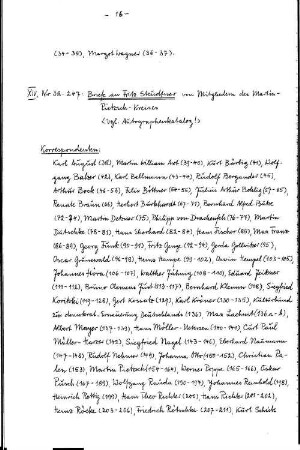 - 18 -
(34-35), Margot Wagner (36-37).
XIV, Nr 38-247: Briefe an Fritz Steudtner von Mitgliedern des Martin-
Pietzsch-Kreises
(vgl. Autographenkatalog!)
Korrespondenten:
Karl August (38), Martin William Ast (39-40), Kurt Bärbig (41), Wolf-
gang Balzer (42), Karl Bellmann (43-44), Rudolf Bergander (45),
Arthur Bock (46-53), Felix Böttner (54-56), Julius Arthur Bohlig (57-65),
Renate Braun (66), Herbert Burkhardt (67-71), Bernhard Alfred Bähr
(72-74), Martin Dehner (75), Philipp von Drachenfels (76-77), Martin
Dutschke (78-81), Hans Eberhard (82-84), Hans Fischer (85), Max Franz
(86-89), Georg Funk (90-91), Fritz Genge (92-94), Gerda Gottlieber (95),
Oscar Grünewald (96-98), Hans Hampe (99-102), Erwin Hempel (103-105),
Johannes Hora (106-107), Walther Hübning (108-110), Eduard Zeitner
(111-116), Bruno Clemens Jost (117), Bernhard Klemm (118), Siegfried
(119-128), Gert Kossatz (129), Karl Kröner (130-135), Kulturbund
zur demokrat. Erneuerung Deutschlands (136), Max Lachnit (136 a-b),
Albert Mayer (137-139), Hans Möller- (140-141), Curt Paul
Müller- (142), Siegfried Nagel (143-146), Eberhard Naumann
(147-148), Rudolf Nehmer (149), Johanna Otto (150-152), Christian Pa-
len (153), Martin Pietzsch (154-164), Werner Poppe (165-166), Oskar
Pusch (167-189), Wolfgang Rauda (190-197), Johannes Reinhold (198),
Heinrich Rettig (199), Hans Theo Richter (200), Hans Richter (201-202),
Heinz Röcke (203-206), Friedrich Rötschke (207-211), Kurt Schütz